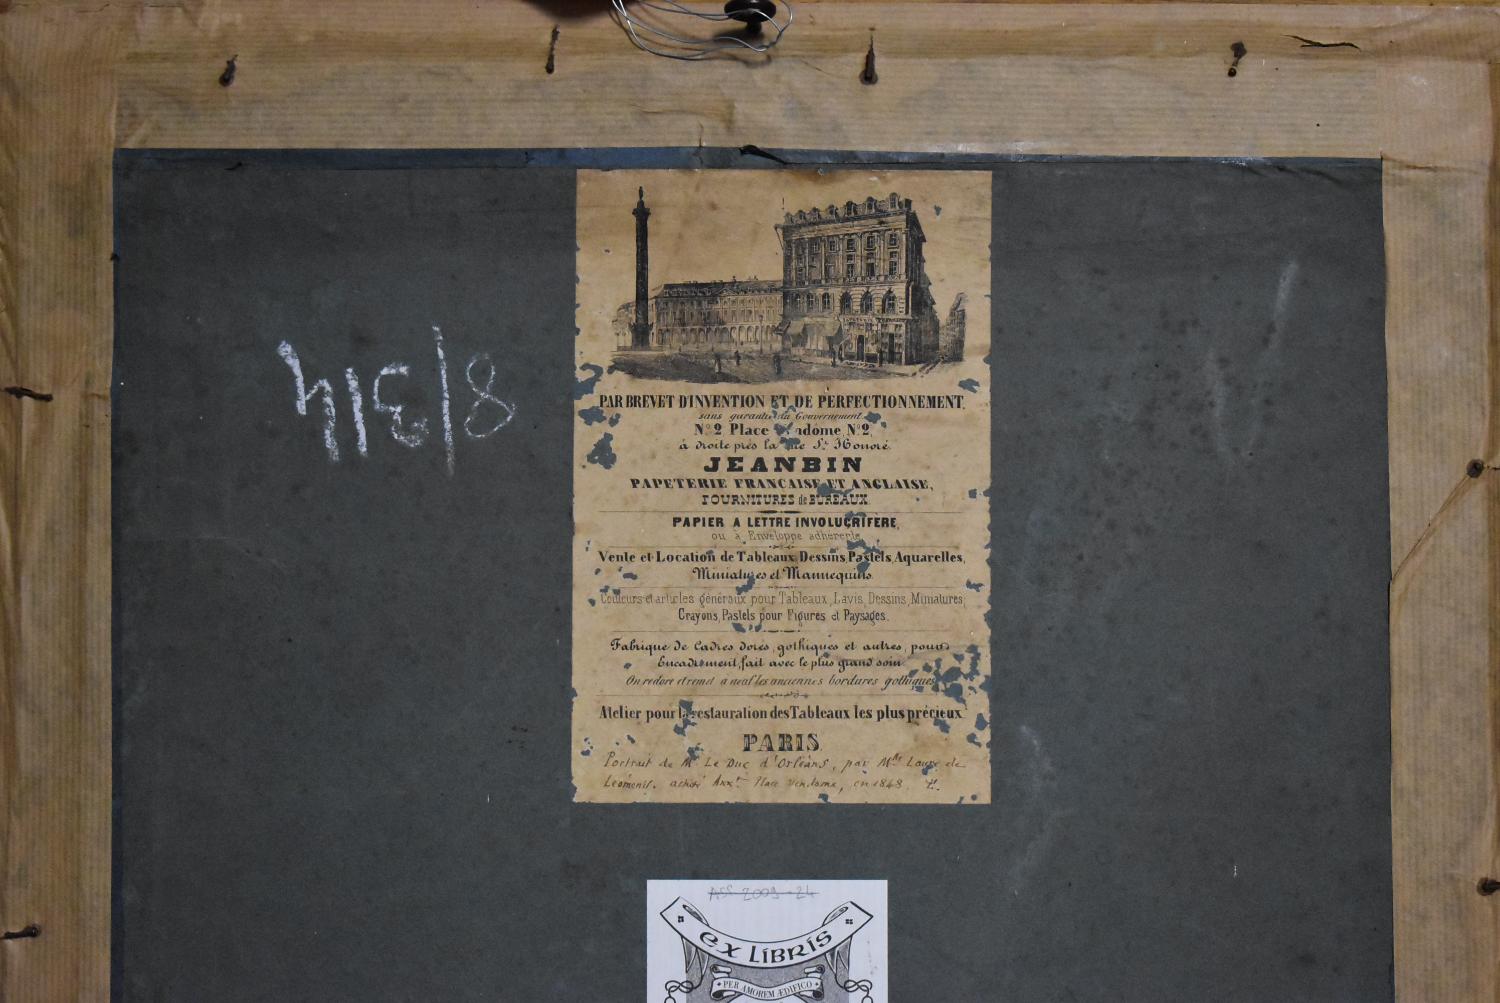 8|3|4
PAR BREVET D'INVENTION ET DE PERFECTIONNEMENT,
sans garantie du Gouvernement.
Nº 2 Place Vendôme, Nº 2,
à droite près la rue St. Honoré.
JEANBIN
PAPETERIE FRANCAISE ET ANGLAISE,
FOURNITURES de BUREAUX.
PAPIER A LETTRE INVOLUCRIFERE,
ou à Enveloppe adhérente
Vente et Location de Tableaux, Dessins, Pastels, Aquarelles,
Miniatures et Mannequins.
Couleurs et articles généraux pour Tableaux, Lavis, Dessins, Miniatures,
Crayons, Pastels pour Figures et Paysages.
Fabrique de Cadres dorés, gothiques et autres, pour
Encadrement, fait avec le plus grand soin
On redore et remet à neuf les anciennes bordures gothiques
Atelier pour la restauration des Tableaux les plus précieux.
PARIS.
Portrait de Mr Le Duc d'Orléans, par Mlle Laure de
Léoménil. acheté Place Vendome, en 1848.
ASS 2009-24
EX LIBRIS
PER AMOREM ÆDIFICO